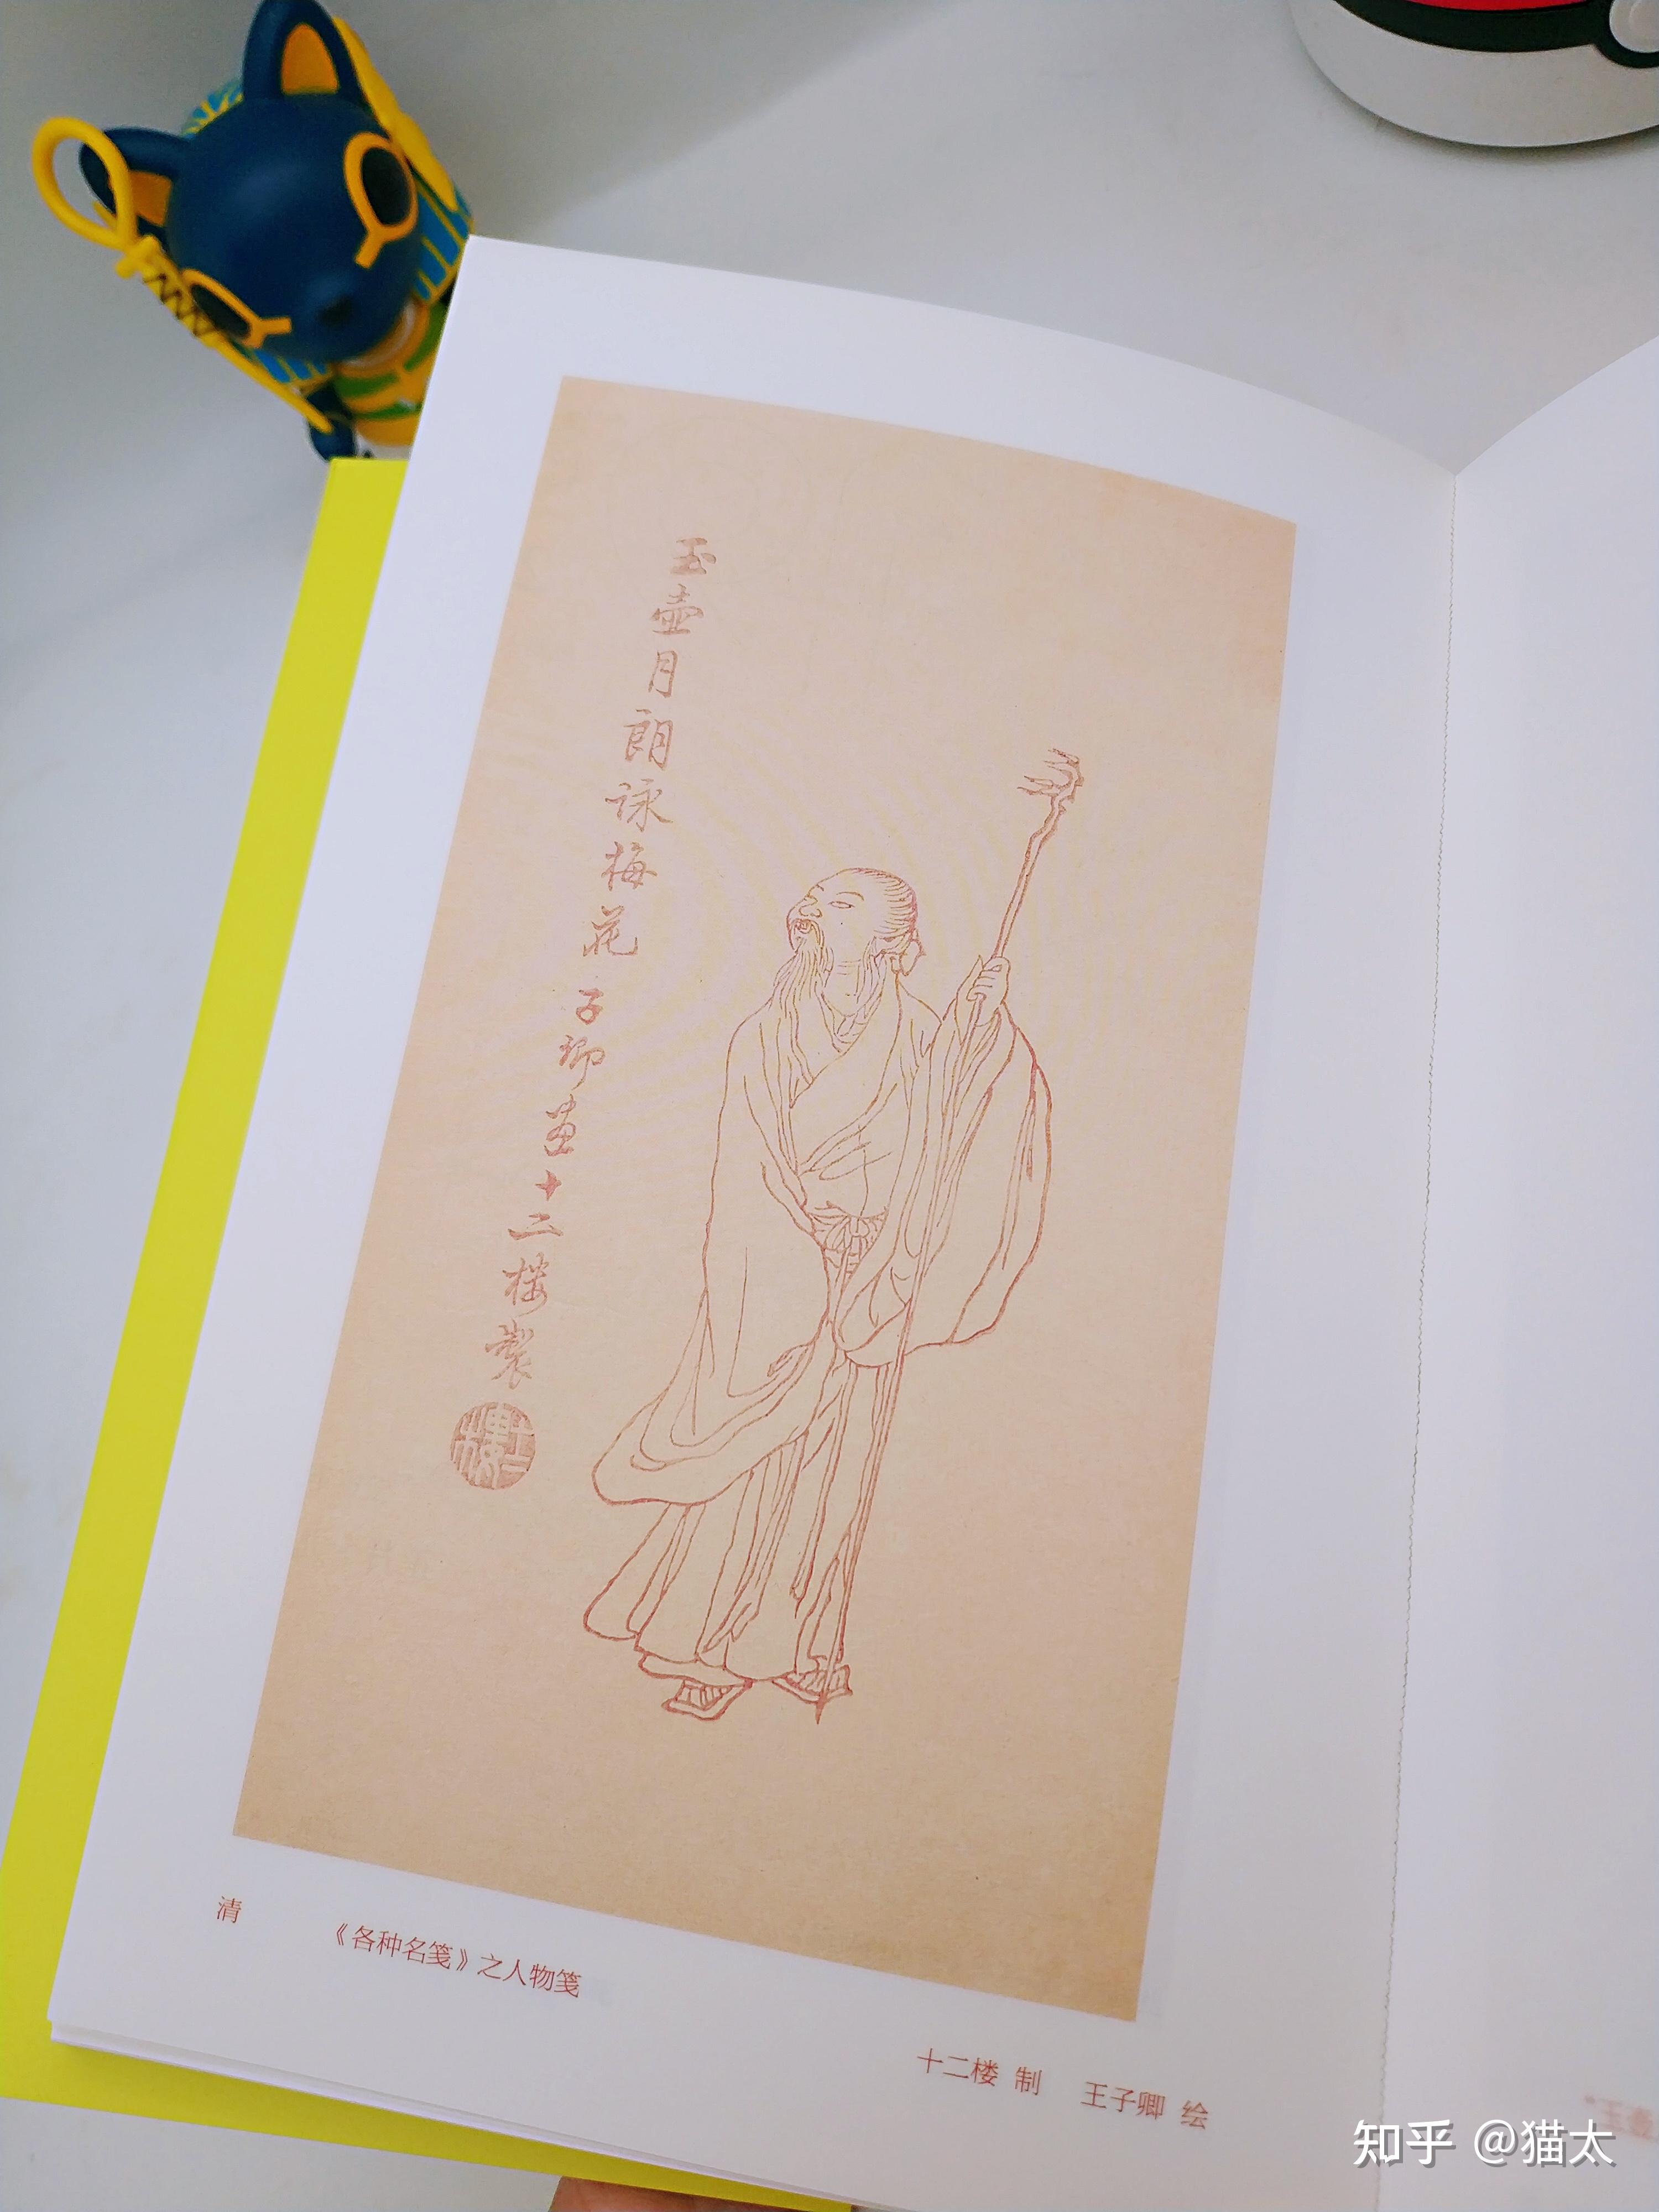 玉壺月朗詠梅花 子卿画十二楼製
十二樓
清 《各种名笺》之人物笺
十二楼 制 王子卿 绘
知乎 @猫太